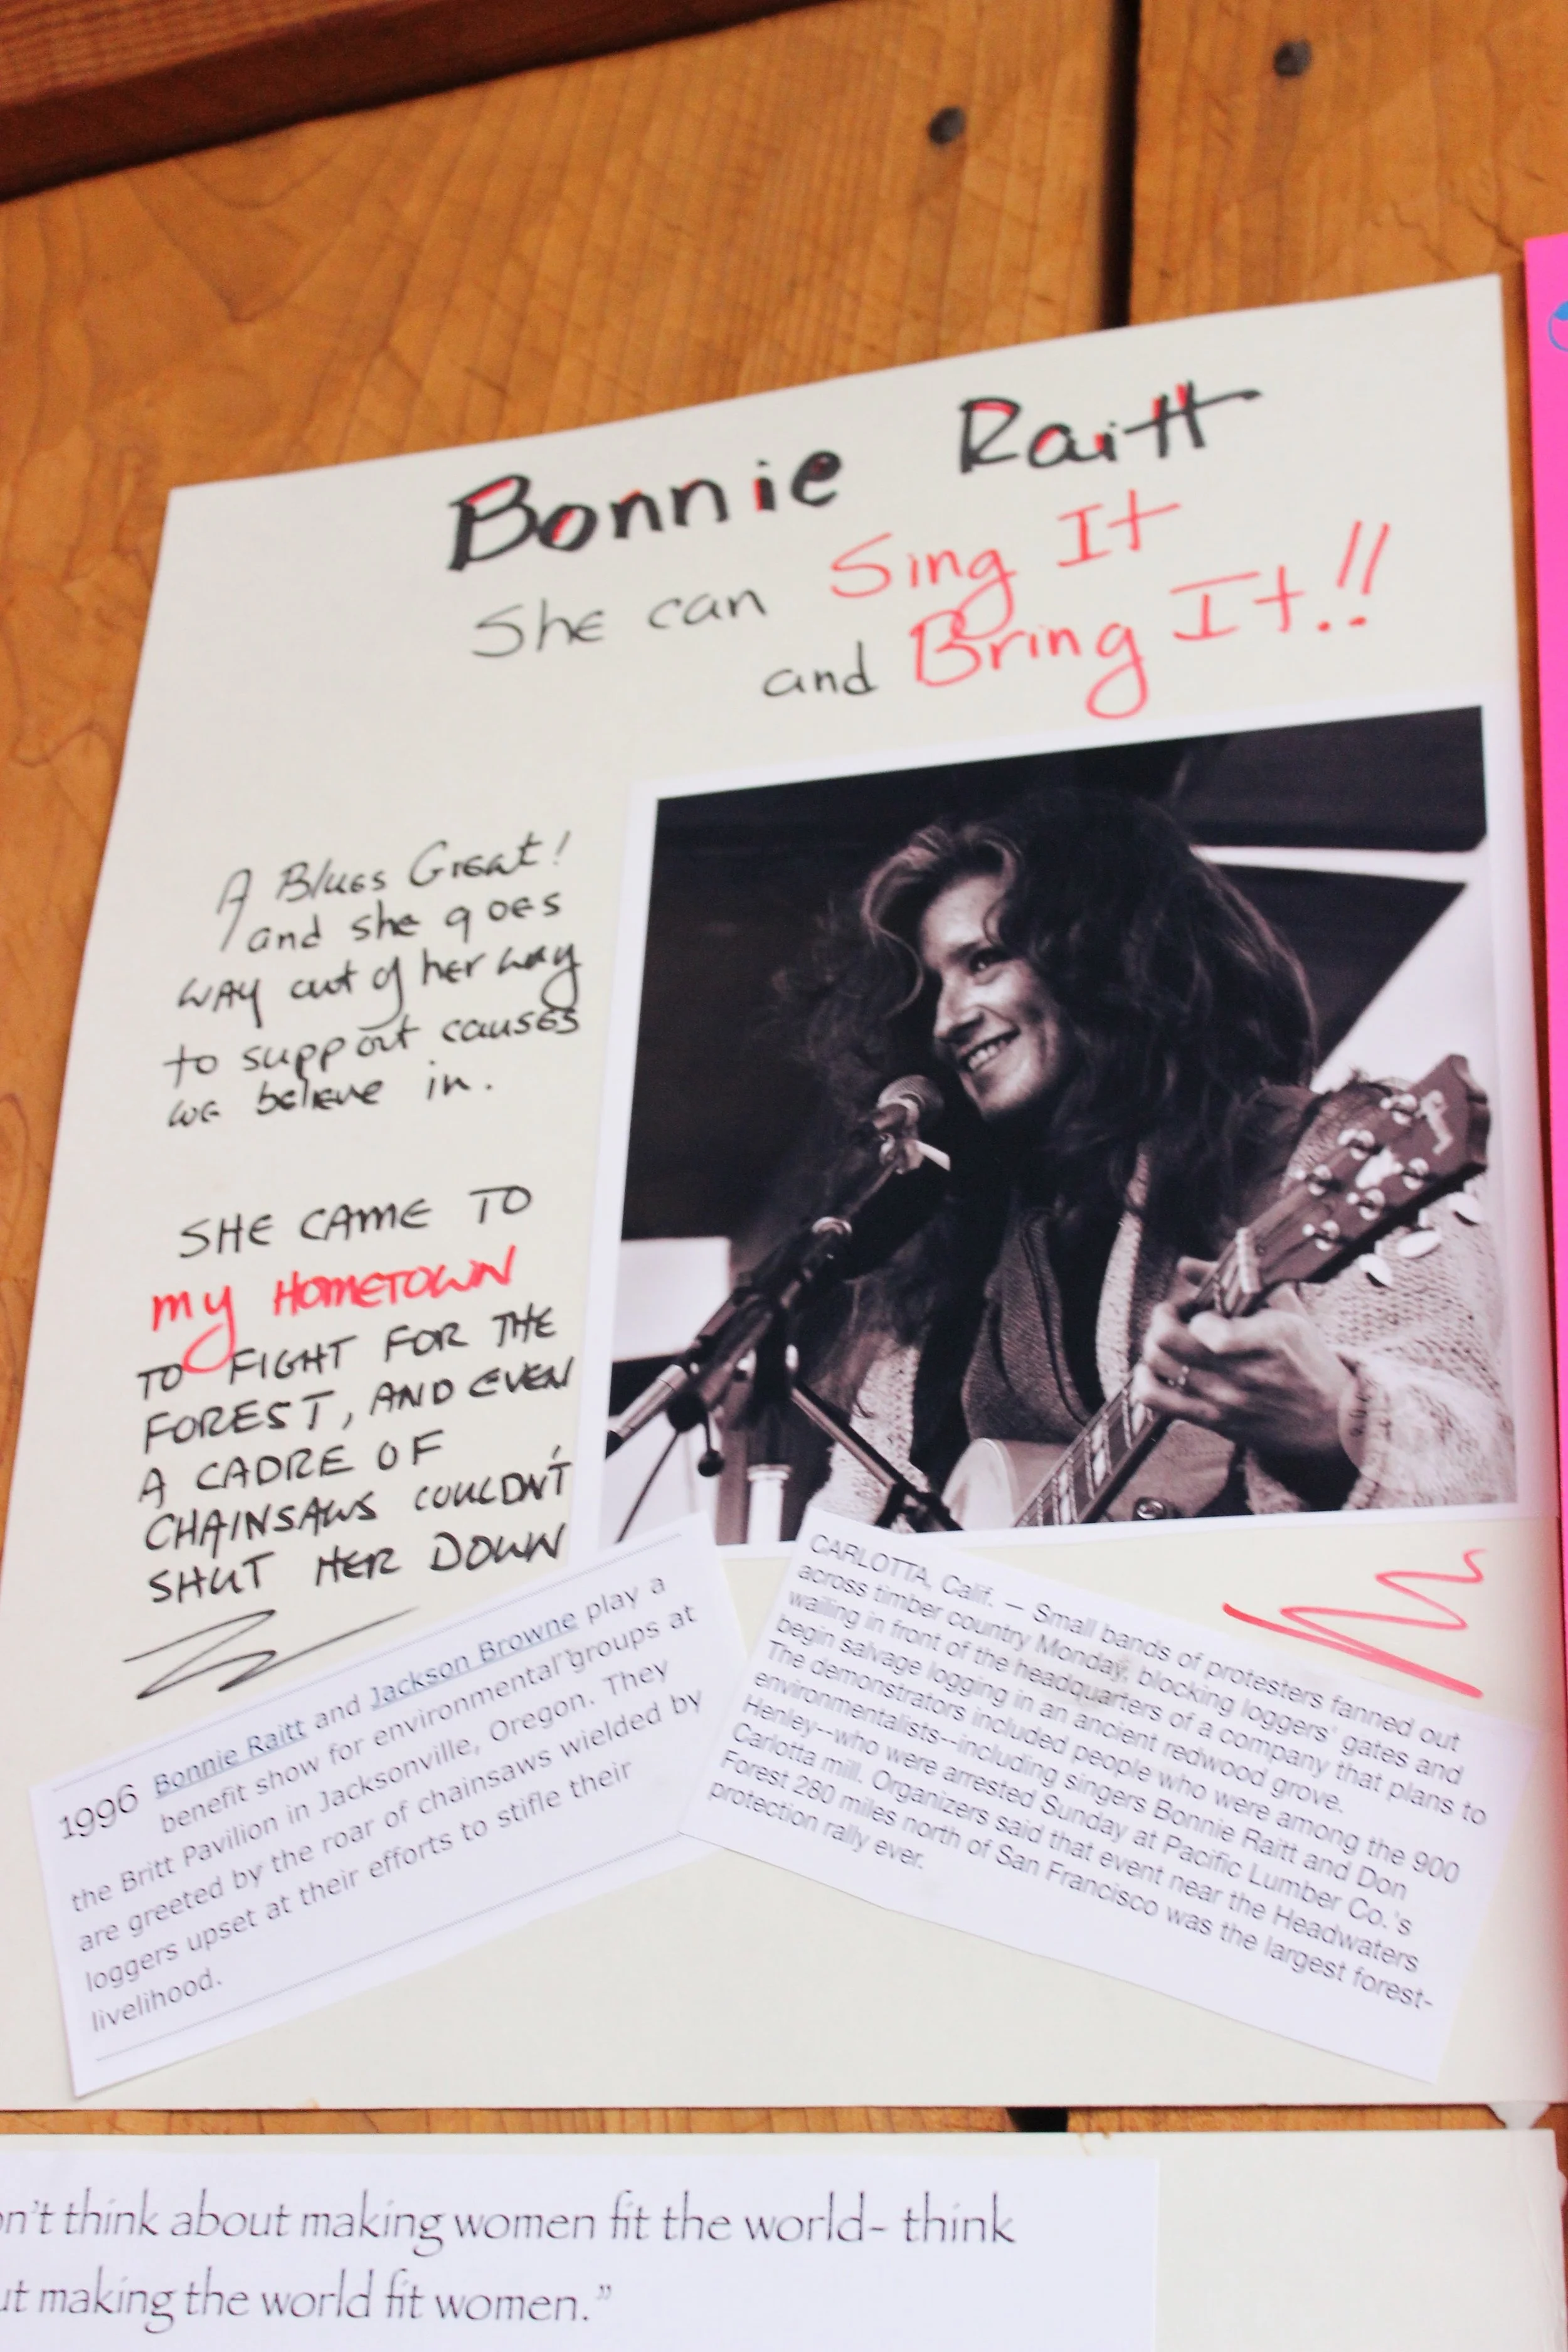 Bonnie Raitt
She can Sing It
and Bring It!!
A Blues Great!
and she goes
way out of her way
to support causes
we believe in.
SHE CAME TO
my HOMETOWN
TO FIGHT FOR THE
FOREST, AND EVEN
A CADRE OF
CHAINSAWS COULDN'T
SHUT HER DOWN
1996 Bonnie Raitt and Jackson Browne play a
benefit show for environmental groups at
the Britt Pavilion in Jacksonville, Oregon. They
are greeted by the roar of chainsaws wielded by
loggers upset at their efforts to stifle their
livelihood.
CARLOTTA, Calif. — Small bands of protesters fanned out
across timber country Monday, blocking loggers' gates and
wailing in front of the headquarters of a company that plans to
begin salvage logging in an ancient redwood grove.
The demonstrators included people who were among the 900
environmentalists--including singers Bonnie Raitt and Don
Henley--who were arrested Sunday at Pacific Lumber Co.'s
Carlotta mill. Organizers said that event near the Headwaters
Forest 280 miles north of San Francisco was the largest forest-
protection rally ever.
think about making women fit the world- think
making the world fit women."